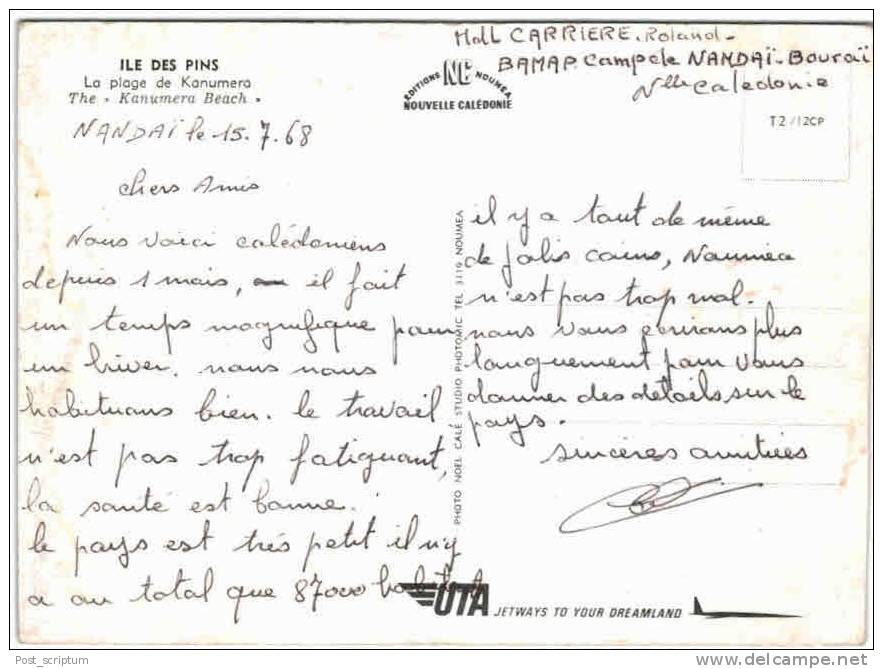 Mdll CARRIERE. Roland -
BAMAP. Camp de NANDAÏ - Bouraï
Nlle Caledonie
ILE DES PINS
La plage de Kanumera
The « Kanumera Beach »
EDITIONS NC NOUMEA
NOUVELLE CALÉDONIE
T2/12CP
NANDAÏ le 15.7.68
chers Amis
Nous voici calédoniens
depuis 1 mois, il fait
un temps magnifique pour
un hiver. nous nous
habituons bien. le travail
n'est pas trop fatiguant,
la santé est bonne.
le pays est très petit il n'y
a au total que 87000 habitants
il y a tout de même
de jolis coins, Nouméa
n'est pas trop mal.
nous vous écrirons plus
longuement pour vous
donner des détails sur le
pays.
sincères amitiées
PHOTO NOEL CALÉ STUDIO PHOTOMIC TEL 3119 NOUMEA
UTA JETWAYS TO YOUR DREAMLAND
Post_scriptum
www.delcampe.net